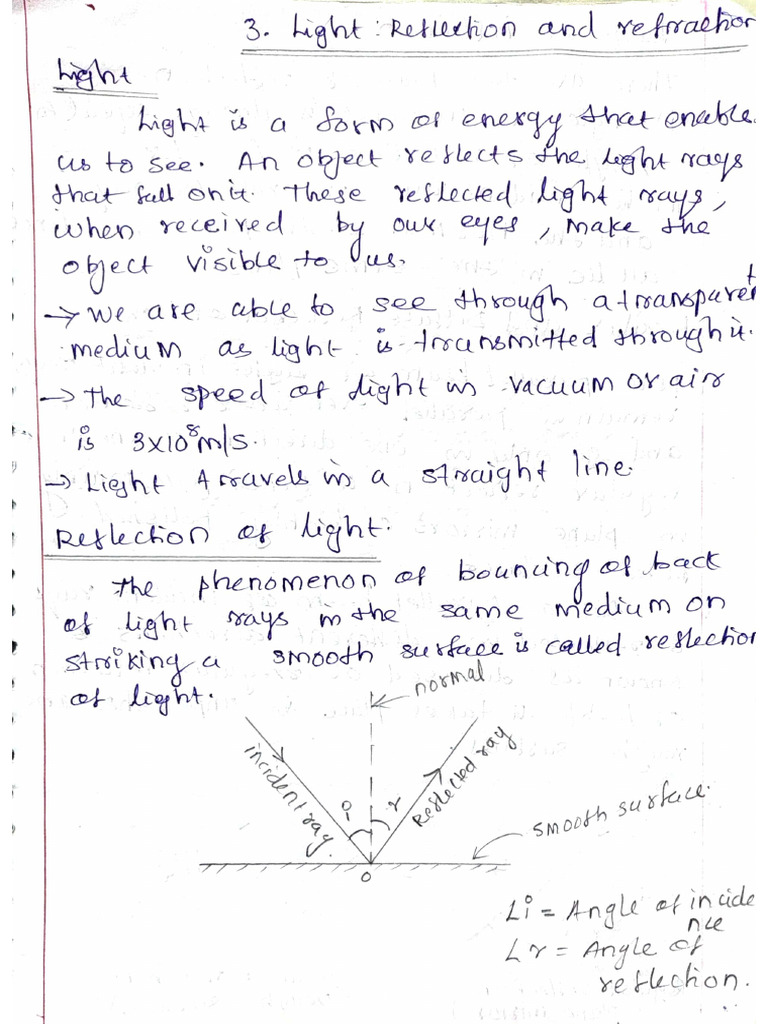 3. Light : Reflection and refraction
Light
Light is a form of energy that enable
us to see. An object reflects the light rays
that fall on it. These reflected light rays,
when received by our eyes, make the
object visible to us.
→ We are able to see through a transparent
medium as light is transmitted through it.
→ the speed of light in vacuum or air
is 3x10⁸m/s.
→ Light travels in a straight line.
Reflection of light.
the phenomenon of bouncing of back
of light rays in the same medium on
striking a smooth surface is called reflection
of light.
normal
incident ray.
i
r
Reflected ray
smooth surface.
o
∠i = Angle of incide
nce
∠r = Angle of
reflection.